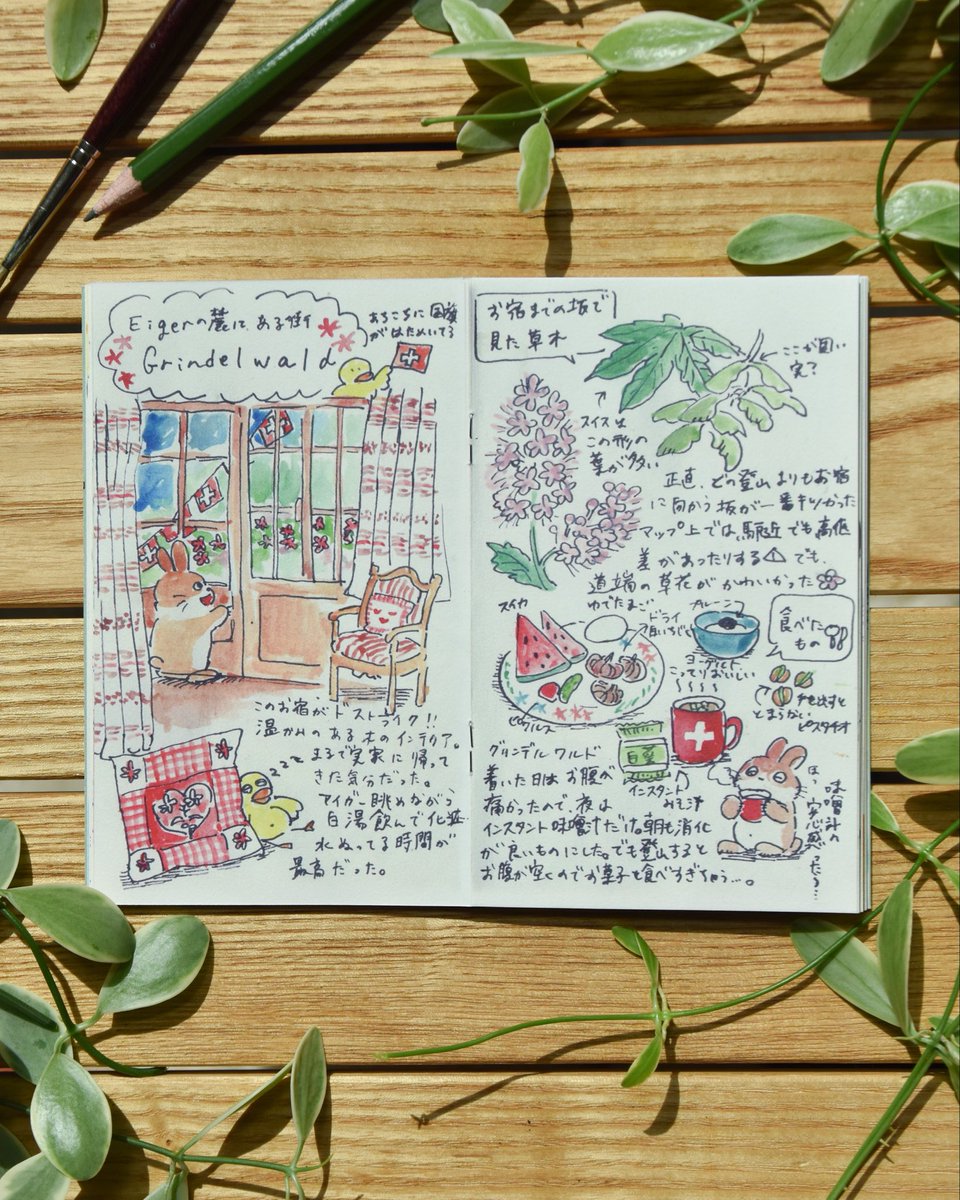 Eigerの麓にある街
Grindelwald
あちこちに国旗
がはためいてる
このお宿がドストライク!!
温かみのある木のインテリア。
まるで実家に帰って
きた気分だった。
アイガー眺めながら
白湯飲んで化粧
水ぬってる時間が
最高だった。
zzz
お宿までの坂で
見た草木
ここが固い
実?
↑
スイスは
この形の
葉が多い
正直、どの登山よりもお宿
に向かう坂が一番キツかった
マップ上では、駅近でも高低
差があったりする⚠でも、
道端の草花がかわいかった
食べた
もの
スイカ
ゆでたまご
ドライ
いちじく
プルーン
ヨーグルト
こってりおいしい
ピクルス
手を出すと
とまらない
ピスタチオ
白菜
インスタント
みそ汁
グリンデルワルド
着いた日はお腹が
痛かったので、夜は
インスタント味噌汁だけ。朝も消化
が良いものにした。でも登山すると
お腹が空くのでお菓子を食べすぎちゃう…。
味噌汁の
安心感ったら…
ほぅ